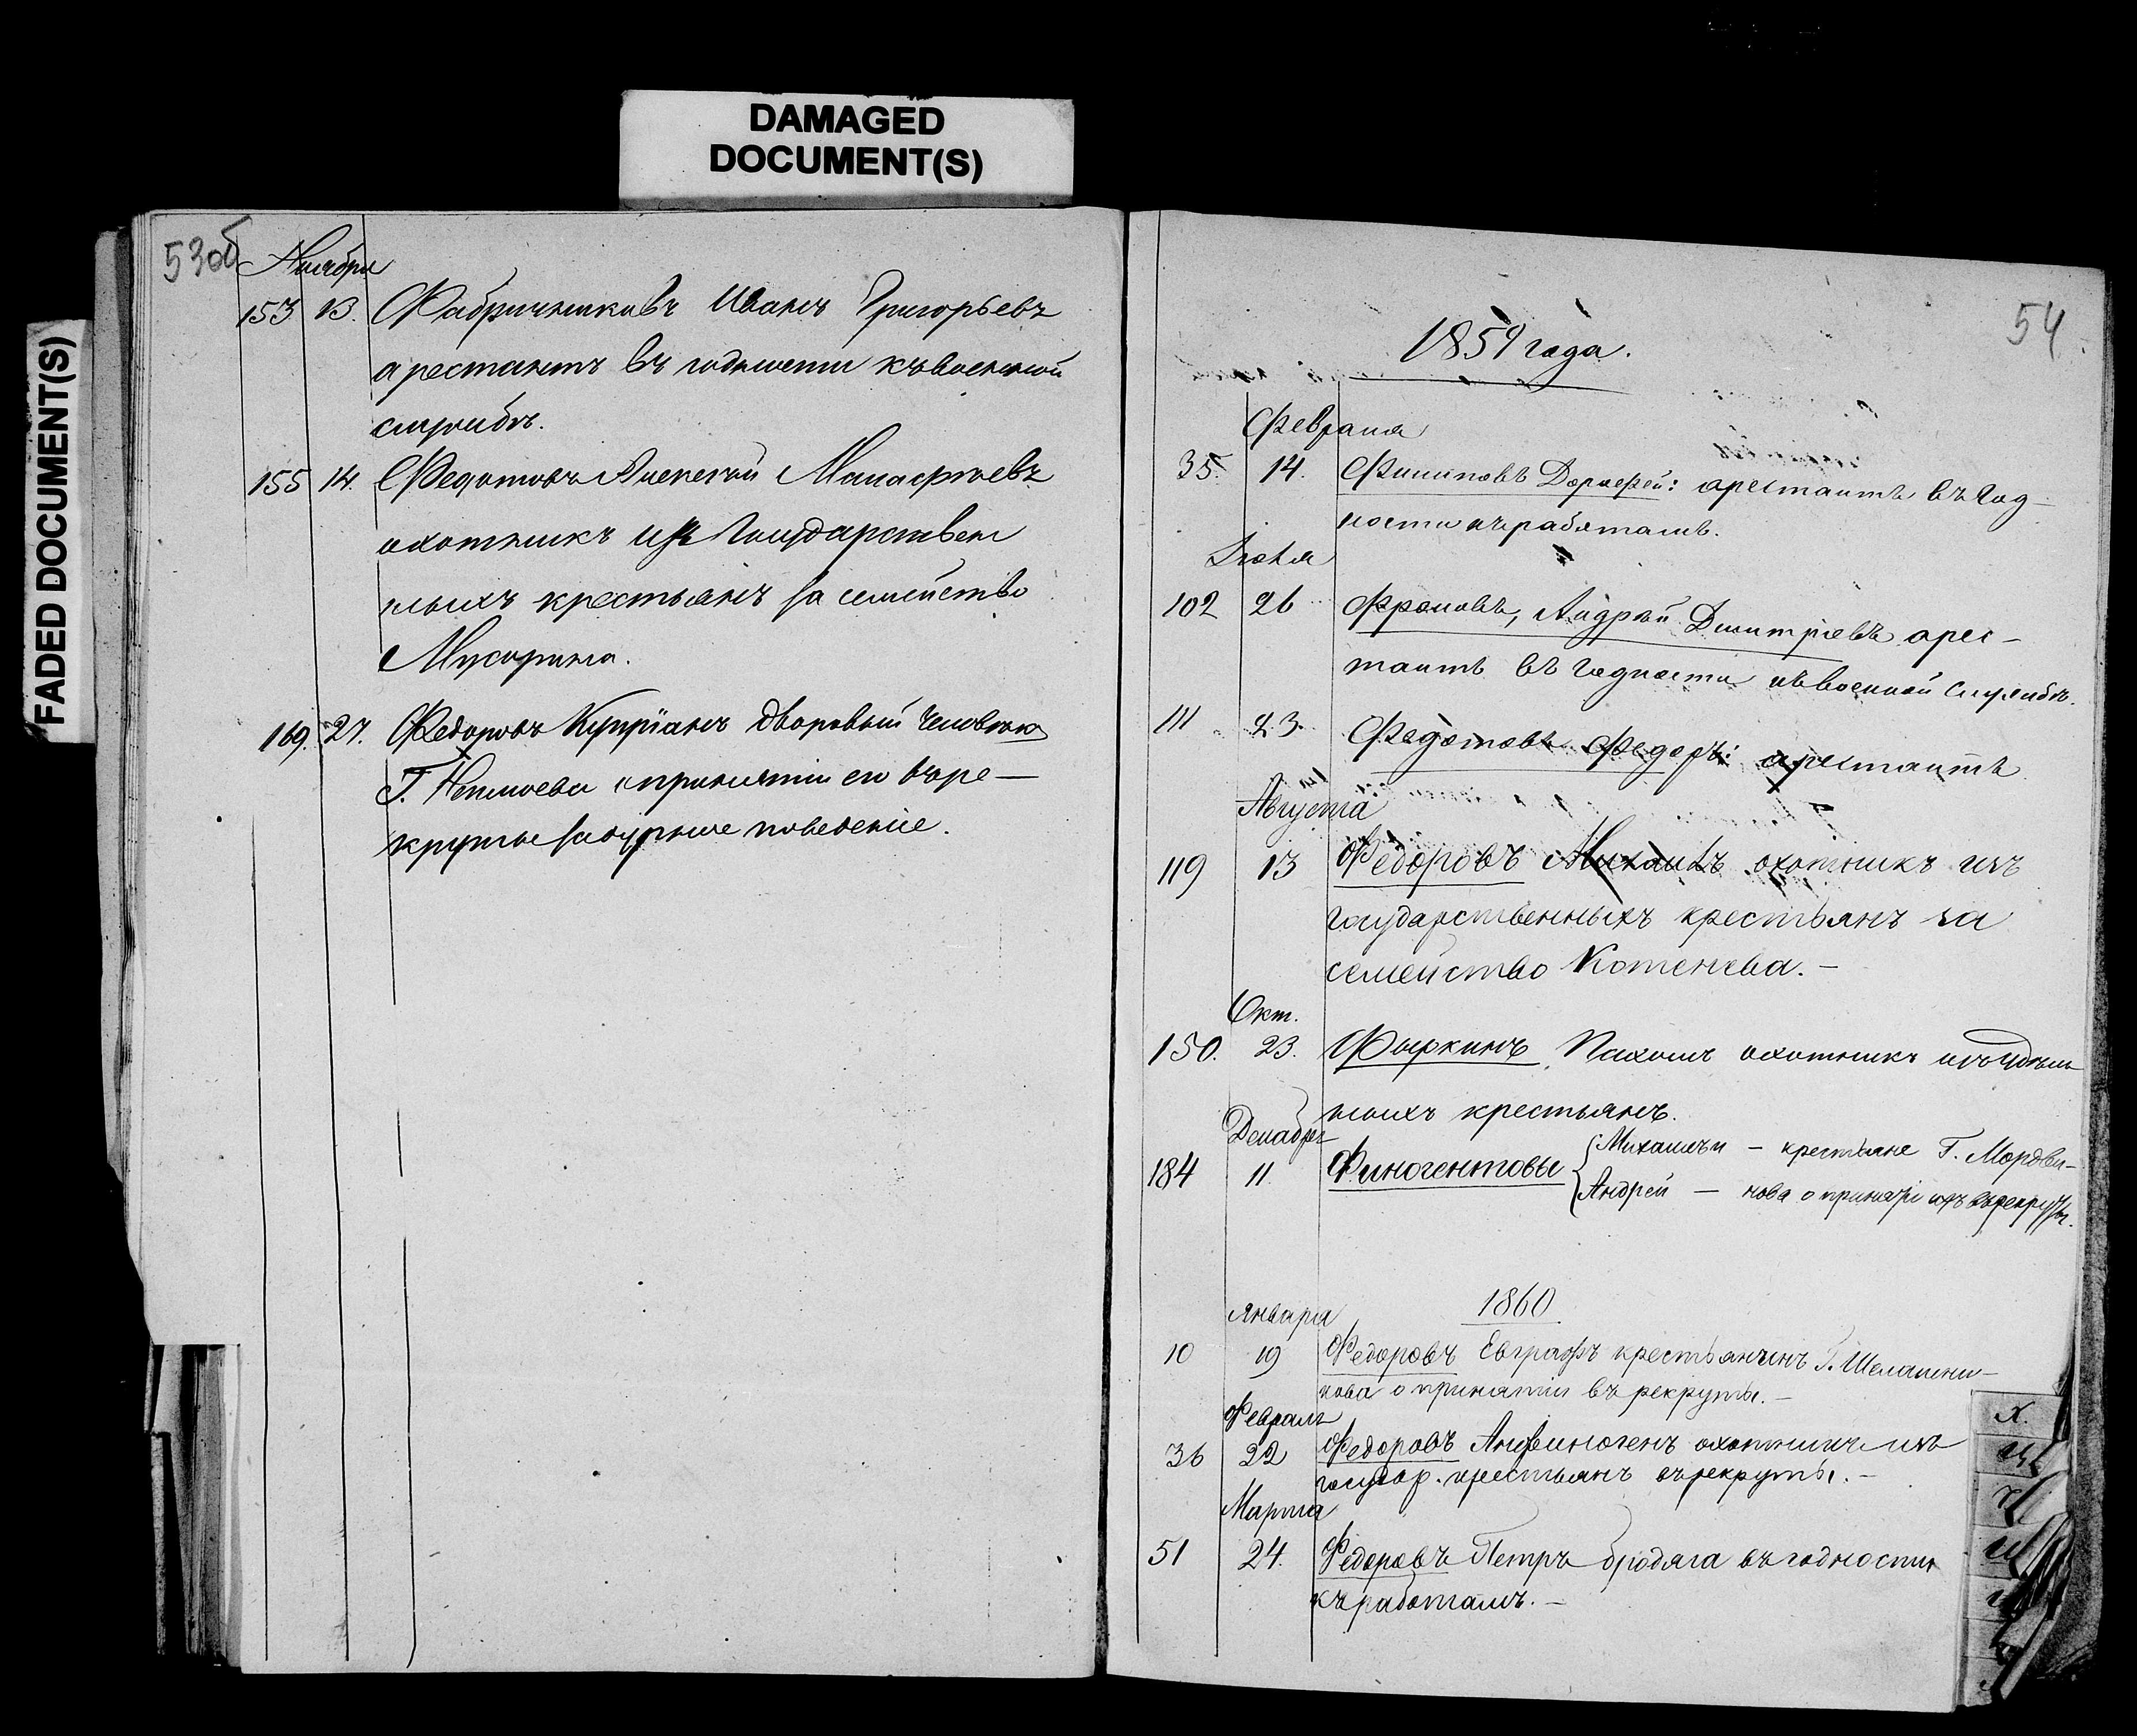 DAMAGED
DOCUMENT(S)
FADED DOCUMENT(S)
53об
Ноября
153 13. Фабричниковъ Иванъ Григорьевъ
арестантъ въ годности къ военной
службѣ.
155 14. Федотовъ Алексѣй
охотникъ изъ Государствен
ныхъ крестьянъ за семейство
Мусорина.
169. 27. Федоровъ Купріанъ дворовый человѣкъ
Г. о принятіи его въ ре—
круты за дурное поведеніе.
54
1859 года.
Февраля
35. 14. Филиповъ Дорофей: арестантъ въ год—
ности къ работамъ.
Іюля
102 26 Фроловъ, Андрей Дмитріевъ арес—
тантъ въ годности къ военной службѣ.
111 23. Федотовъ Федоръ: арестантъ
Августа
119 13 Федоровъ Михаилъ охотникъ изъ
государственныхъ крестьянъ за
семейство Котенева.—
Окт.
150. 23. Фыркинъ, Пахомъ охотникъ изъ удѣль
ныхъ крестьянъ.
Декабря
184 11 Финогентовы { Михаилъ и — крестьяне Г. Мордви—
Андрей — нова о принятіи ихъ въ рекруты.
1860
Января
10 19 Федоровъ Евграфъ крестьянинъ Г. Шелашни—
кова о принятіи въ рекруты.—
Февраля
36 22 Федоровъ охотникъ изъ
государ. крестьянъ въ рекруты.—
Марта
51 24. Федоровъ Петръ бродяга въ годности
къ работамъ.—
Х.